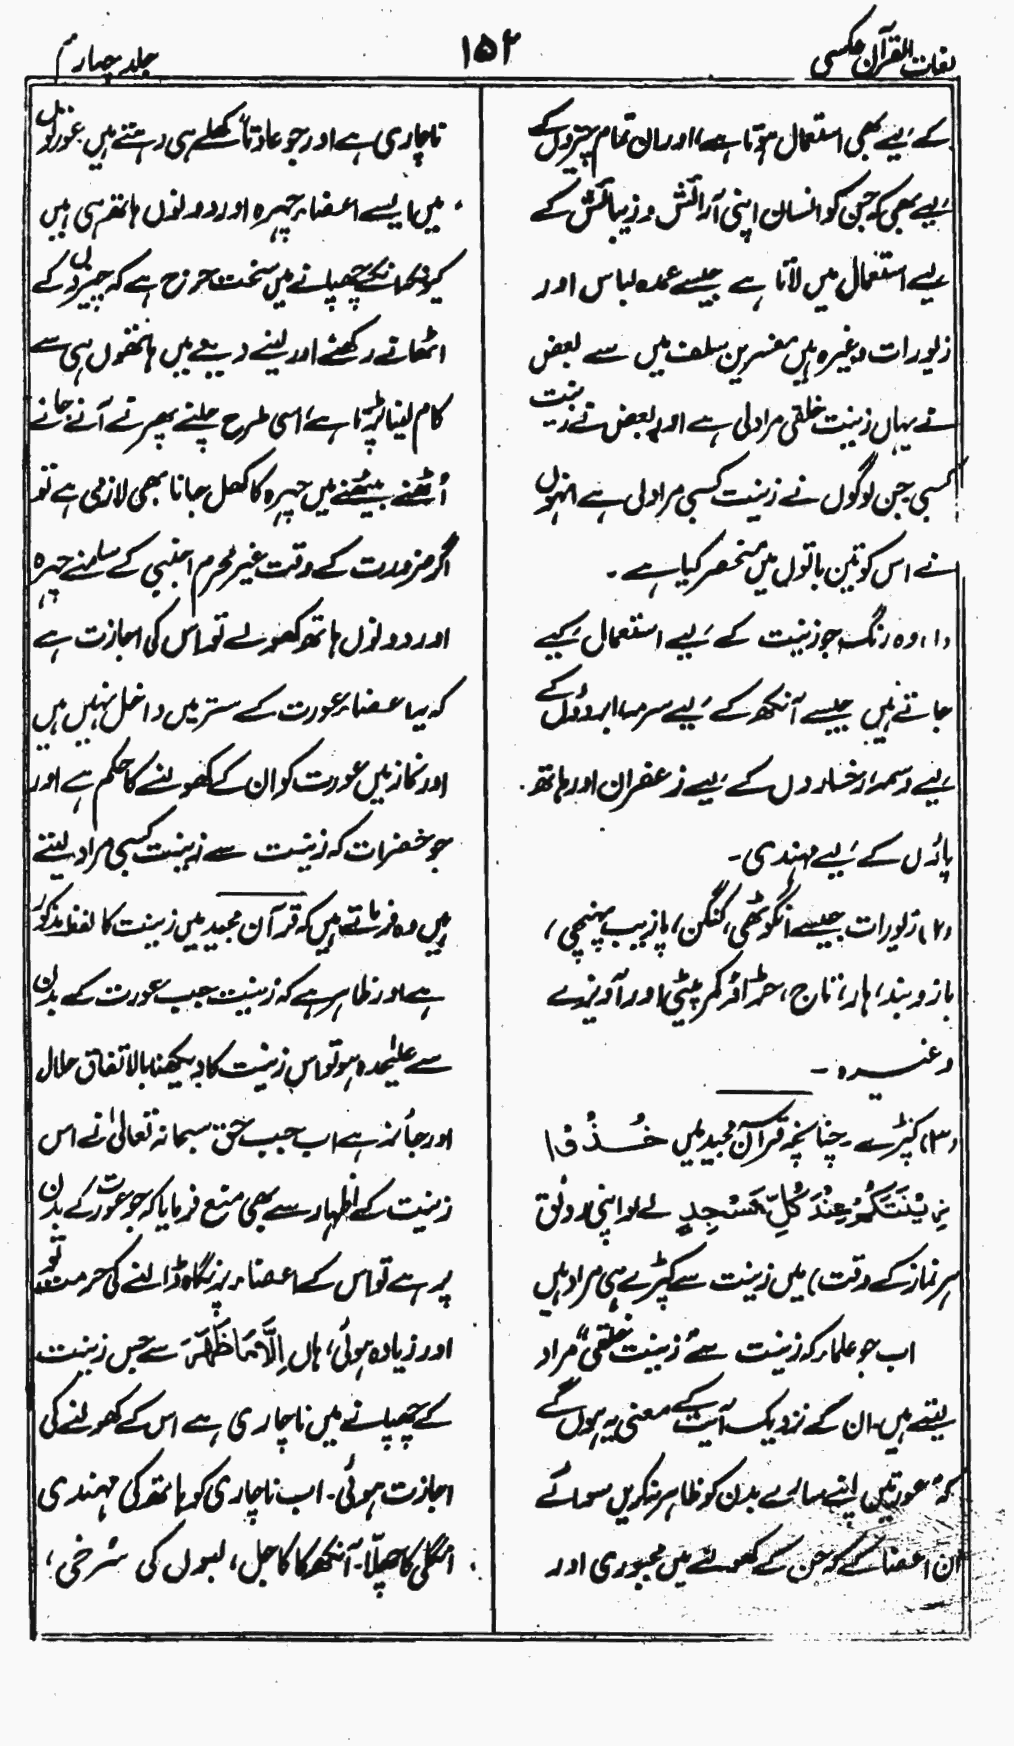 لغات القرآن عکسی
۱۵۲
جلد چہارم
کے لیے بھی استعمال ہوتا ہے، اور ان تمام چیزوں کے
لیے بھی کہ جن کو انسان اپنی آرائش و زیبائش کے
لیے استعمال میں لاتا ہے جیسے عمدہ لباس اور
زیورات وغیرہ ہیں مفسرین سلف میں سے بعض
نے یہاں زینت خلقی مراد لی ہے اور بعض نے زینت
کسبی جن لوگوں نے زینت کسبی مراد لی ہے انہوں
نے اس کو تین باتوں میں منحصر کیا ہے۔
(۱) وہ رنگ جو زینت کے لیے استعمال کیے
جاتے ہیں جیسے آنکھ کے لیے سرمہ، ابروؤں کے
لیے وسمہ، رخساروں کے لیے زعفران اور ہاتھ
پاؤں کے لیے مہندی۔
(۲) زیورات جیسے انگوٹھی، کنگن، پازیب پہنچی،
بازوبند، ہار، تاج، جڑاؤ کمر پٹی اور آویزے
وغیرہ۔
(۳) کپڑے۔ چنانچہ قرآن مجید میں خُذُوْا
زِیْنَتَکُمْ عِنْدَ کُلِّ مَسْجِدٍ لے لو اپنی رونق
ہر نماز کے وقت) میں زینت سے کپڑے ہی مراد ہیں
اب جو علماء کہ زینت سے زینت خلقی مراد
لیتے ہیں۔ ان کے نزدیک آیت کے معنی یہ ہوں گے
کہ عورتیں اپنے سارے بدن کو ظاہر نہ کریں سوائے
ان اعضا کے کہ جن کے کھولنے میں مجبوری اور
ناچاری ہے اور جو عادتاً کھلے ہی رہتے ہیں عورتوں
میں ایسے اعضاء چہرہ اور دونوں ہاتھ ہی ہیں
کیونکہ انکے چھپانے میں سخت حرج ہے کہ چیزوں کے
اٹھانے رکھنے اور لینے دینے میں ہاتھوں ہی سے
کام لینا پڑتا ہے، اسی طرح چلنے پھرنے آنے جانے
اُٹھنے بیٹھنے میں چہرہ کا کھل جانا بھی لازمی ہے تو
اگر ضرورت کے وقت غیر محرم اجنبی کے سامنے چہرہ
اور دونوں ہاتھ کھولے تو اس کی اجازت ہے
کہ یہ اعضاء عورت کے ستر میں داخل نہیں ہیں
اور نماز میں عورت کو ان کے کھولنے کا حکم ہے اور
جو حضرات کہ زینت سے زینت کسبی مراد لیتے
ہیں وہ فرماتے ہیں کہ قرآن مجید میں زینت کا لفظ مذکور
ہے اور ظاہر ہے کہ زینت جب عورت کے بدن
سے علیٰحدہ ہو تو اس زینت کا دیکھنا بالاتفاق حلال
اور جائز ہے اب جب حق سبحانہ تعالیٰ نے اس
زینت کے اظہار سے بھی منع فرمایا کہ جو عورت کے بدن
پر ہے تو اس کے اعضاء پر نگاہ ڈالنے کی حرمت تو
اور زیادہ ہوئی، ہاں اِلَّا مَا ظَھَرَ سے جس زینت
کے چھپانے میں ناچاری ہے اس کے کھولنے کی
اجازت ہوئی۔ اب ناچاری کو ہاتھ کی مہندی
انگلی کا چھلّا۔ آنکھ کا کاجل، لبوں کی سُرخی،